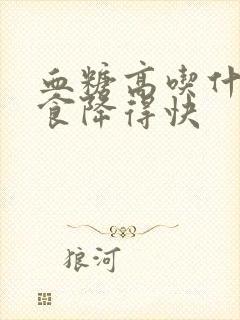 血糖高喫什
食降得快
狼河